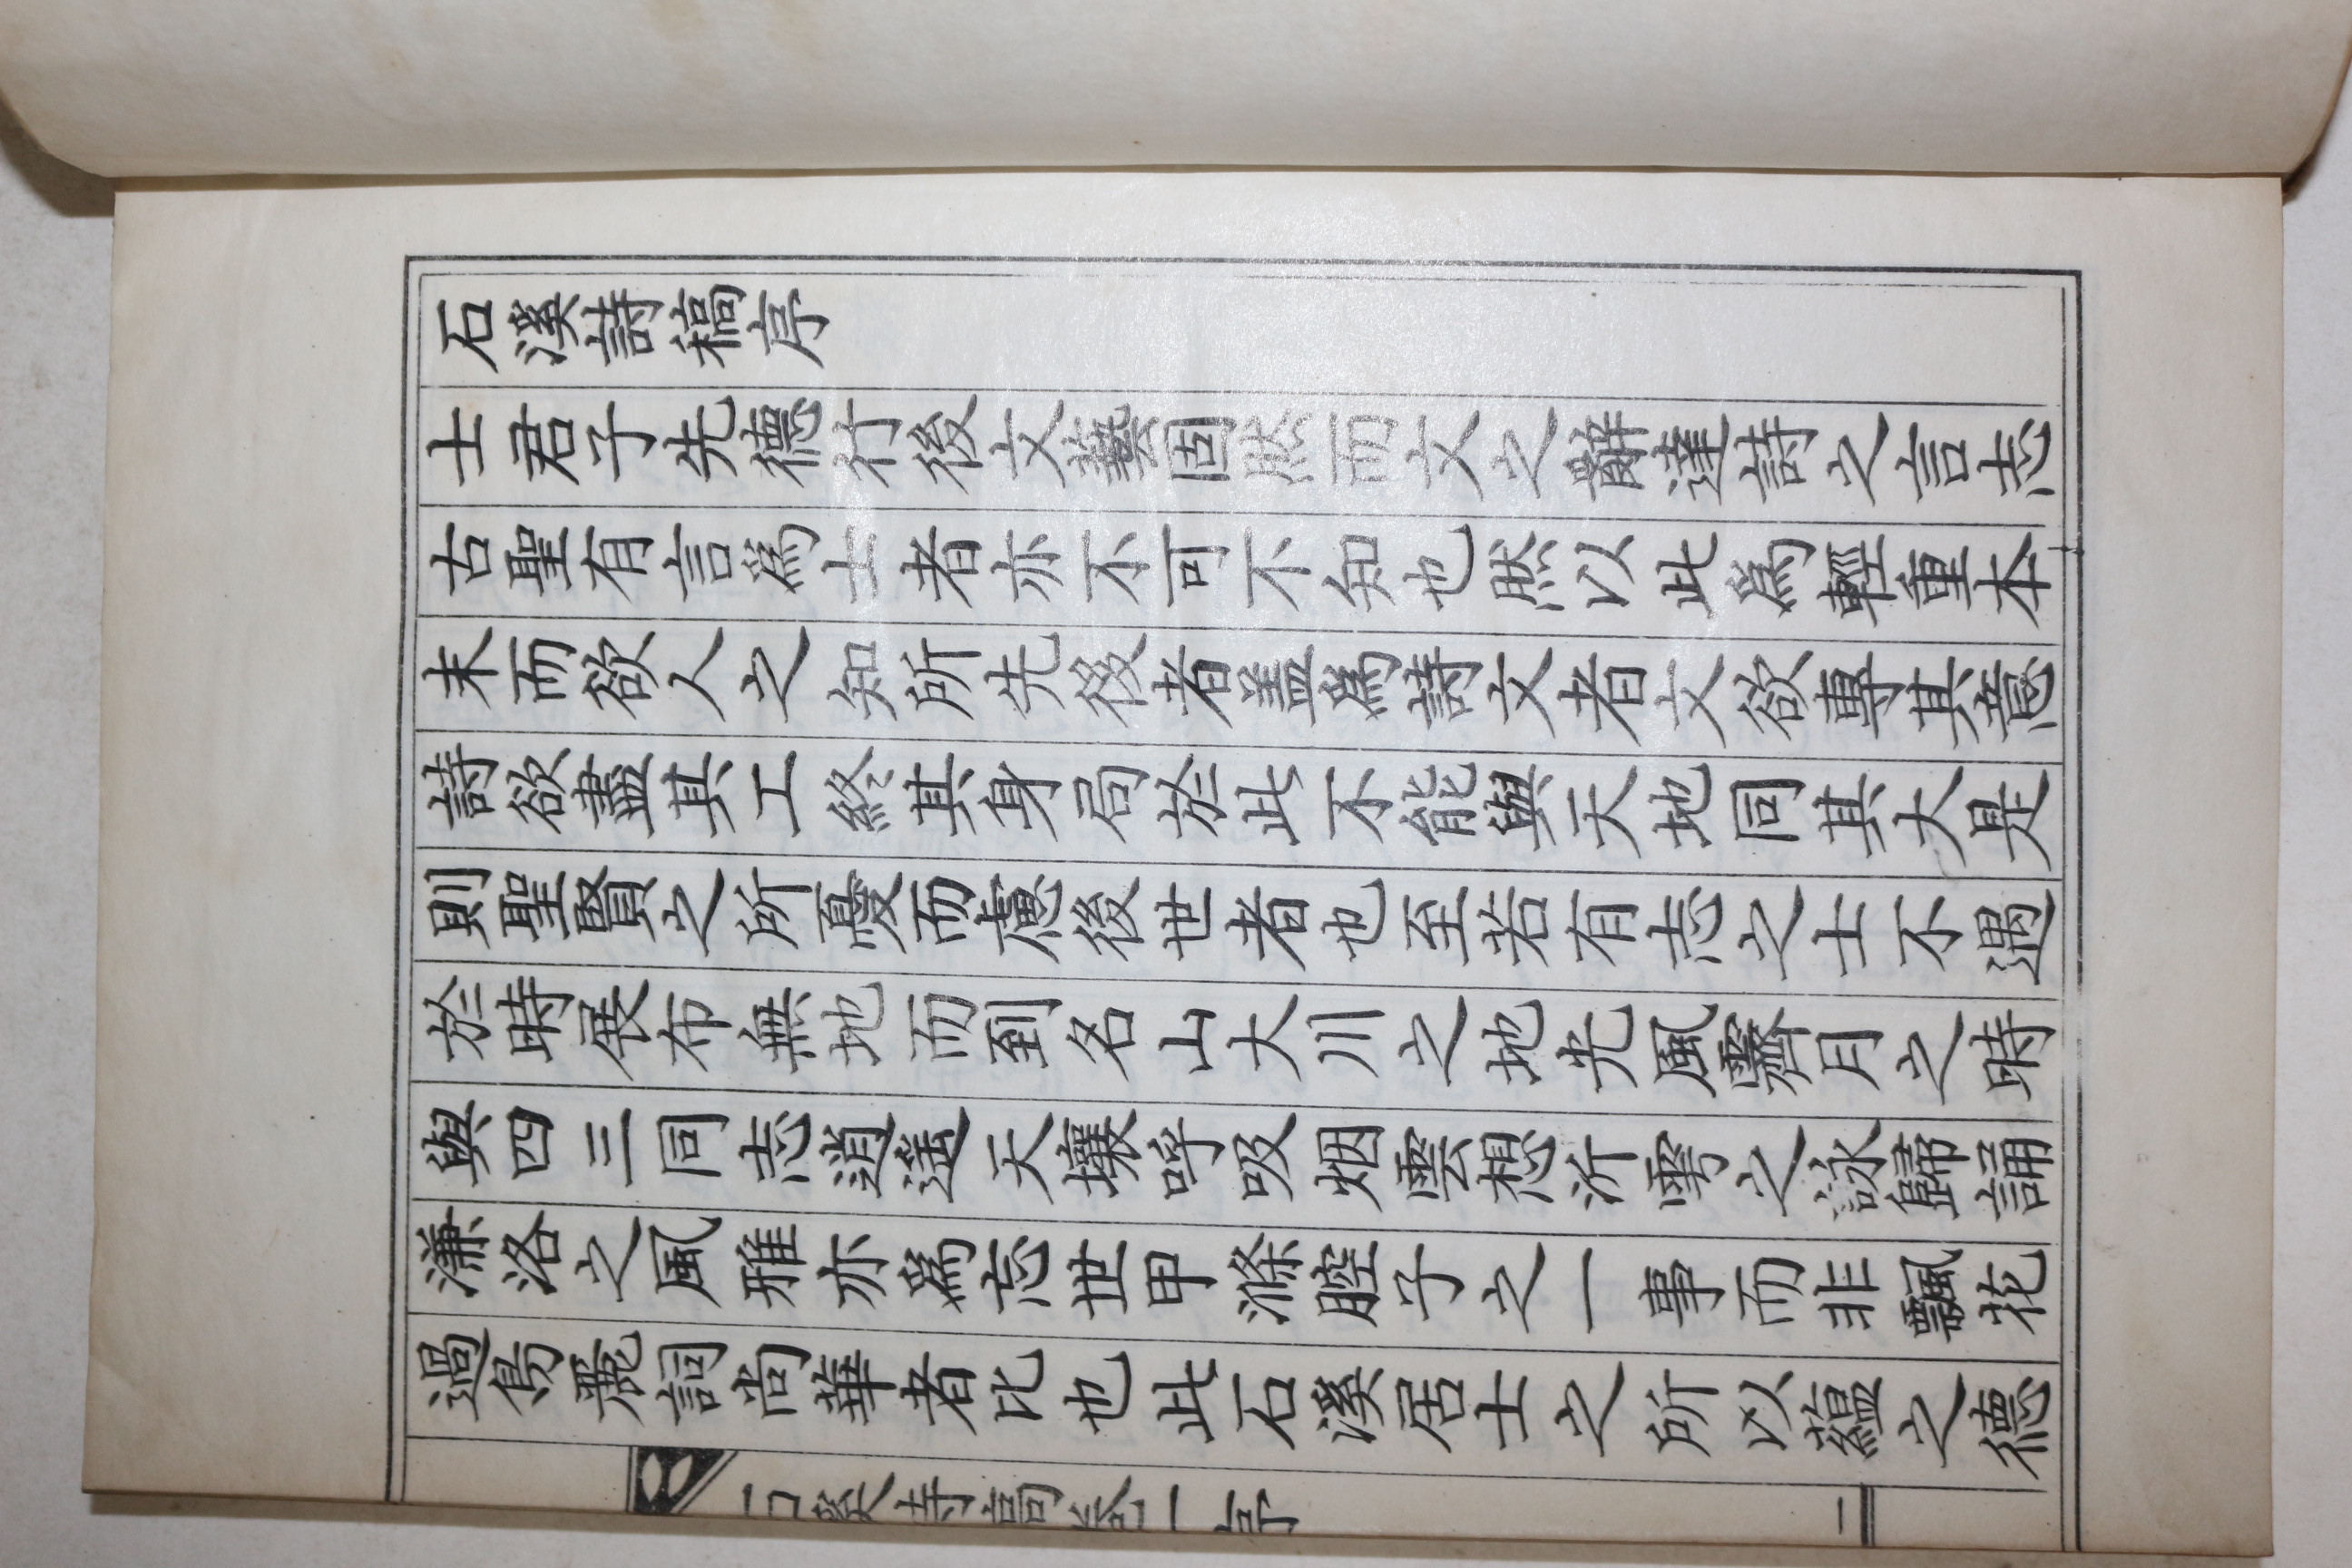 石溪詩稿序
士君子先德行後文藝固然而文之辭達詩之言志
古聖有言爲士者亦不可不知也然以此爲輕重本
末而欲人之知所先後者盖爲詩文者文欲專其意
詩欲盡其工終其身局於此不能與天地同其大是
則聖賢之所憂而慮後世者也至若有志之士不遇
於時展布無地而到名山大川之地光風霽月之時
與四三同志逍遙天壤呼吸烟雲想沂雩之詠歸誦
濂洛之風雅亦爲忘世甲滌腔子之一事而非飄花
過鳥麗詞尙華者比也此石溪居士之所以蘊之德
石溪詩稿卷一序
一